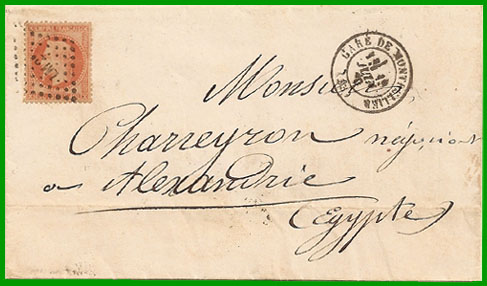 EMPIRE FRANÇAIS
GARE DE MONTPELLIER
Monsieur
Charreyron négociant
a Alexandrie
(Egypte)